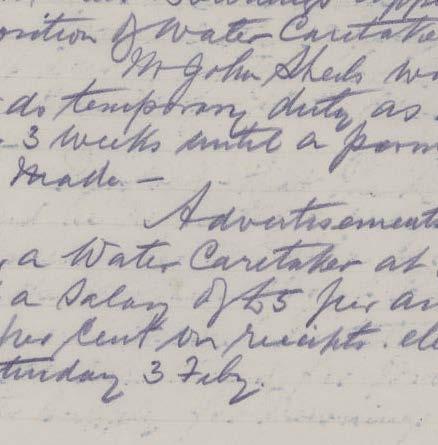 osition of Water Caretake
Mr John Sheils wa
do temporary duty as
3 weeks until a perm
Made —
Advertisements
a Water Caretaker at
a Salary of £5 per an
per Cent on receipts. clo
turday 3 Feby.